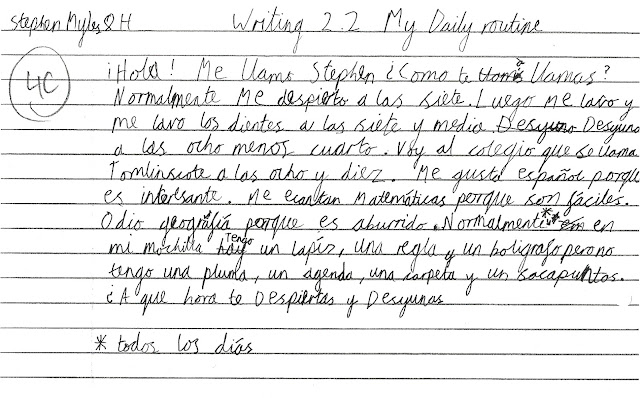 Stephen Myles 8H Writing 2.2 My Daily routine
4C
¡Hola! Me llamo Stephen ¿Como te llamas?
Normalmente Me despierto a las siete. Luego me lavo y
me lavo los dientes a las siete y media. Desyuno Desyuno
a las ocho menos cuarto. Voy al colegio que se llama
Tomlinscote a las ocho y diez. Me gusta español porque
es interesante. Me ecantan Matemáticas porque son fáciles.
Odio geografía porque es aburrido. Normalmente ** en
mi mochilla hay Tengo un lapiz, una regla y un boligrafo pero no
tengo una pluma, un agenda, una carpeta y un sacapuntas.
¿A que hora te Despiertas y Desyunas
* todos los diás